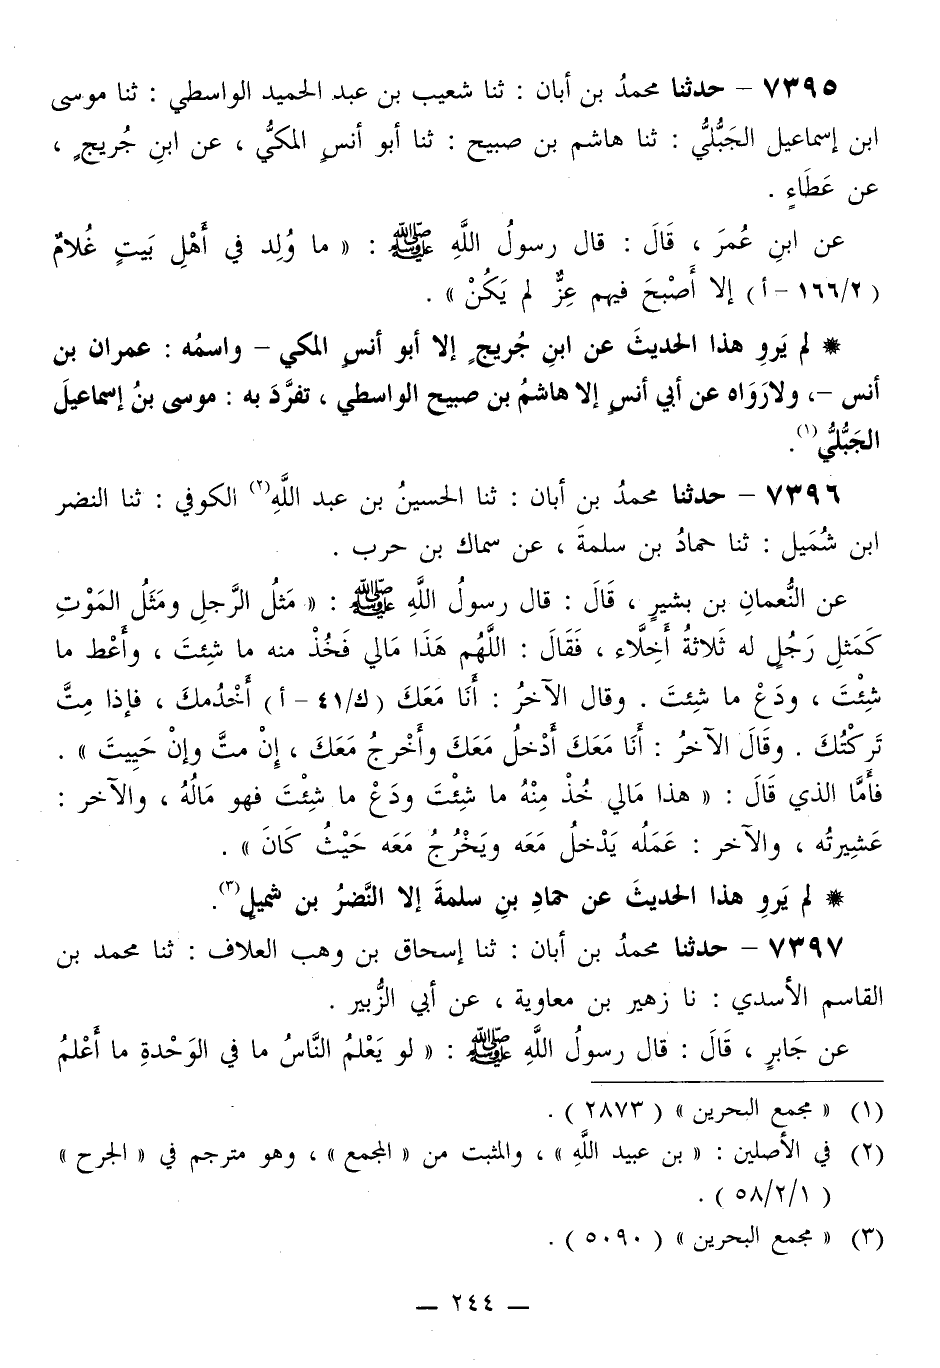 ٧٣٩٥ – حدثنا محمدُ بن أبان : ثنا شعيب بن عبد الحميد الواسطي : ثنا موسى
ابن إسماعيل الجَبُّليُّ : ثنا هاشم بن صبيح : ثنا أبو أنسٍ المكيُّ ، عن ابنِ جُريجٍ ،
عن عَطَاءٍ .
عن ابنِ عُمرَ ، قَالَ : قال رسولُ اللَّهِ ﷺ : « ما وُلِد في أَهْلِ بَيتٍ غُلامٌ
(١٦٦/٢ – أ) إلا أَصْبحَ فيهم عِزٌّ لم يَكُنْ » .
* لم يَروِ هذا الحديثَ عن ابنِ جُريجٍ إلا أبو أنسٍ المكي – واسمُه : عمران بن
أنس –، ولا رَوَاه عن أبي أنسٍ إلا هاشمُ بن صبيح الواسطي ، تفرَّدَ به : موسى بنُ إسماعيلَ
الجَبُّليُّ(١).
٧٣٩٦ – حدثنا محمدُ بن أبان : ثنا الحسينُ بن عبد اللَّهِ(٢) الكوفي : ثنا النضر
ابن شُمَيل : ثنا حمادُ بن سلمةَ ، عن سماك بن حرب .
عن النُّعمانِ بن بشيرٍ ، قَالَ : قال رسولُ اللَّهِ ﷺ : « مَثلُ الرَّجلِ ومَثَلُ المَوْتِ
كَمَثلِ رَجُلٍ له ثَلاثةُ أَخِلَّاء ، فَقَالَ : اللَّهُم هَذَا مَالي فَخُذْ منه ما شِئتَ ، وأَعْط ما
شِئْتَ ، ودَعْ ما شِئتَ . وقال الآخرُ : أَنَا مَعَكَ (ك/٤١ – أ) أَخْدُمكَ ، فإذا مِتَّ
تَركتُكَ . وقَالَ الآخرُ : أَنَا مَعَكَ أَدْخلُ مَعَكَ وأَخْرجُ مَعَكَ ، إِنْ متَّ وإنْ حَيِيتَ » .
فأَمَّا الذي قَالَ : « هذا مَالي خُذْ مِنْهُ ما شِئْتَ ودَعْ ما شِئْتَ فهو مَالُهُ ، والآخر :
عَشِيرتُه ، والآخر : عَمَلُه يَدْخلُ مَعَه ويَخْرُجُ مَعَه حَيْثُ كَانَ » .
* لم يَروِ هذا الحديثَ عن حمادِ بنِ سلمةَ إلا النَّضرُ بن شميلٍ(٣).
٧٣٩٧ – حدثنا محمدُ بن أبان : ثنا إسحاق بن وهب العلاف : ثنا محمد بن
القاسم الأسدي : نا زهير بن معاوية ، عن أبي الزُّبير .
عن جَابرٍ ، قَالَ : قال رسولُ اللَّهِ ﷺ : « لو يَعْلمُ النَّاسُ ما في الوَحْدةِ ما أَعْلمُ
(١) « مجمع البحرين » ( ٢٨٧٣ ) .
(٢) في الأصلين : « بن عبيد اللَّهِ » ، والمثبت من « المجمع » ، وهو مترجم في « الجرح »
( ٥٨/٢/١ ) .
(٣) « مجمع البحرين » ( ٥٠٩٠ ) .
– ٢٤٤ –